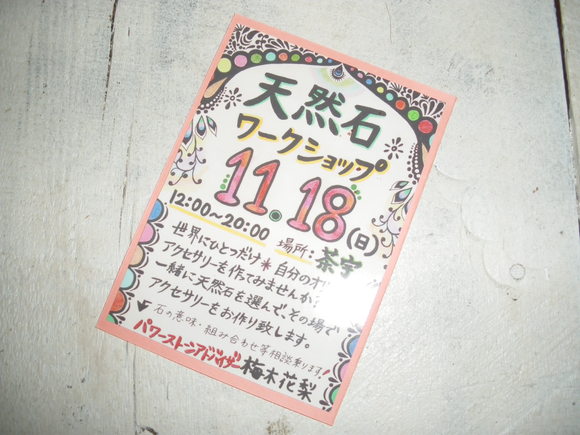 天然石
ワークショップ
11.18(日)
12:00〜20:00 場所：茶宇
世界にひとつだけ＊自分のオリ
アクセサリーを作ってみませんか？
一緒に天然石を選んで、その場で
アクセサリーをお作り致します。
石の意味・組み合わせ等相談乗ります！
パワーストーンアドバイザー 梅木花梨